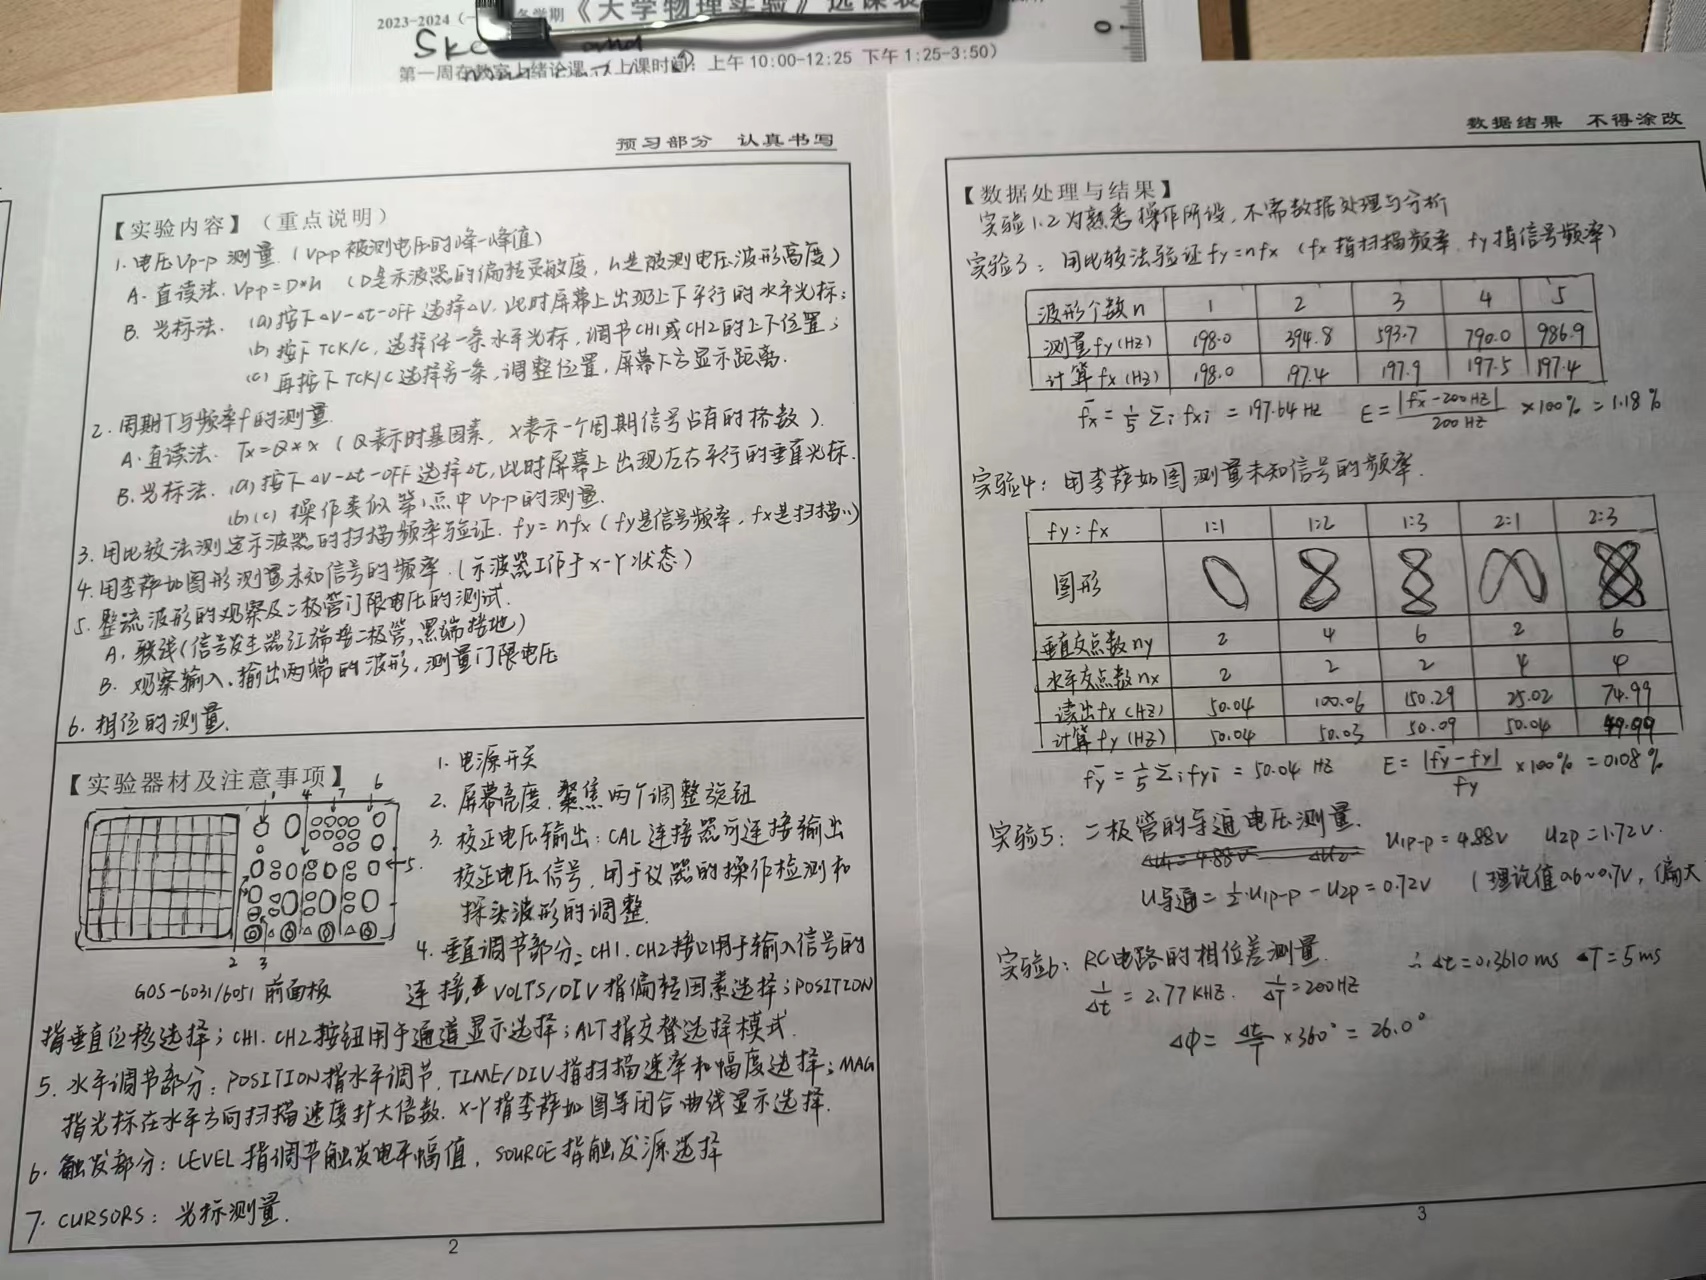 2023-2024(一
学期《大学物理实验》选课表
第一周在教室上绪论课 (上课时间: 上午 10:00-12:25 下午 1:25-3:50)
预习部分 认真书写
【实验内容】(重点说明)
1. 电压Vp-p 测量. (Vp-p被测电压的峰-峰值)
A. 直读法. Vp-p=D*h (D是示波器的偏转灵敏度, h是被测电压波形高度)
B. 光标法. (a)按下△V-△t-OFF选择△V, 此时屏幕上出现上下平行的水平光标;
(b) 按下TCK/C, 选择任一条水平光标, 调节CH1或CH2的上下位置;
(c) 再按下TCK/C选择另一条, 调整位置, 屏幕下方显示距离.
2. 周期T与频率f的测量.
A. 直读法. Tx=Q*x (Q表示时基因素, X表示一个周期信号占有的格数).
B. 光标法. (a)按下△V-△t-OFF选择△t, 此时屏幕上出现左右平行的垂直光标.
(b)(c) 操作类似第1点中Vp-p的测量.
3. 用比较法测定示波器的扫描频率验证. fy=nfx (fy是信号频率, fx是扫描..)
4. 用李萨如图形测量未知信号的频率. (示波器工作于X-Y状态)
5. 整流波形的观察及二极管门限电压的测试.
A. 联线(信号发生器红端接二极管, 黑端接地)
B. 观察输入、输出两端的波形, 测量门限电压
6. 相位的测量.
【实验器材及注意事项】
1 4 7 6
5
2 3
GOS-6031/6051 前面板
1. 电源开关
2. 屏幕亮度、聚焦两个调整旋钮
3. 校正电压输出: CAL连接器可连接输出
校正电压信号, 用于仪器的操作检测和
探头波形的调整.
4. 垂直调节部分: CH1、CH2接口用于输入信号的
连接, VOLTS/DIV指偏转因素选择; POSITION
指垂直位移选择; CH1、CH2按钮用于通道显示选择; ALT指交替选择模式.
5. 水平调节部分: POSITION指水平调节, TIME/DIV指扫描速率和幅度选择; MAG
指光标在水平方向扫描速度扩大倍数. X-Y指李萨如图等闭合曲线显示选择.
6. 触发部分: LEVEL指调节触发电平幅值, SOURCE指触发源选择
7. CURSORS: 光标测量.
2
数据结果 不得涂改
【数据处理与结果】
实验1.2为熟悉操作所设, 不需数据处理与分析
实验3: 用比较法验证fy=nfx (fx指扫描频率, fy指信号频率)
波形个数n 1 2 3 4 5
测量fy(Hz) 198.0 394.8 593.7 790.0 986.9
计算fx(Hz) 198.0 197.4 197.9 197.5 197.4
f̄x = 1/5 Σi fxi = 197.64 Hz E = |f̄x-200Hz|/200Hz ×100% = 1.18%
实验4: 用李萨如图测量未知信号的频率.
fy:fx 1:1 1:2 1:3 2:1 2:3
图形
垂直交点数ny 2 4 6 2 6
水平交点数nx 2 2 2 4 4
读出fx(Hz) 50.04 100.06 150.29 25.02 74.99
计算fy(Hz) 50.04 50.03 50.09 50.04 49.99
f̄y = 1/5 Σi fyi = 50.04 Hz E = |f̄y-fy|/fy ×100% = 0.08%
实验5: 二极管的导通电压测量.
U1p-p=4.88V U2p=1.72V.
U导通 = 1/2 U1p-p - U2p = 0.72V (理论值0.6~0.7V, 偏大
实验6: RC电路的相位差测量.
1/△t = 2.77KHZ. 1/△T = 200HZ ∴ △t=0.3610ms △T=5ms
△φ = △t/T ×360° = 26.0°
3